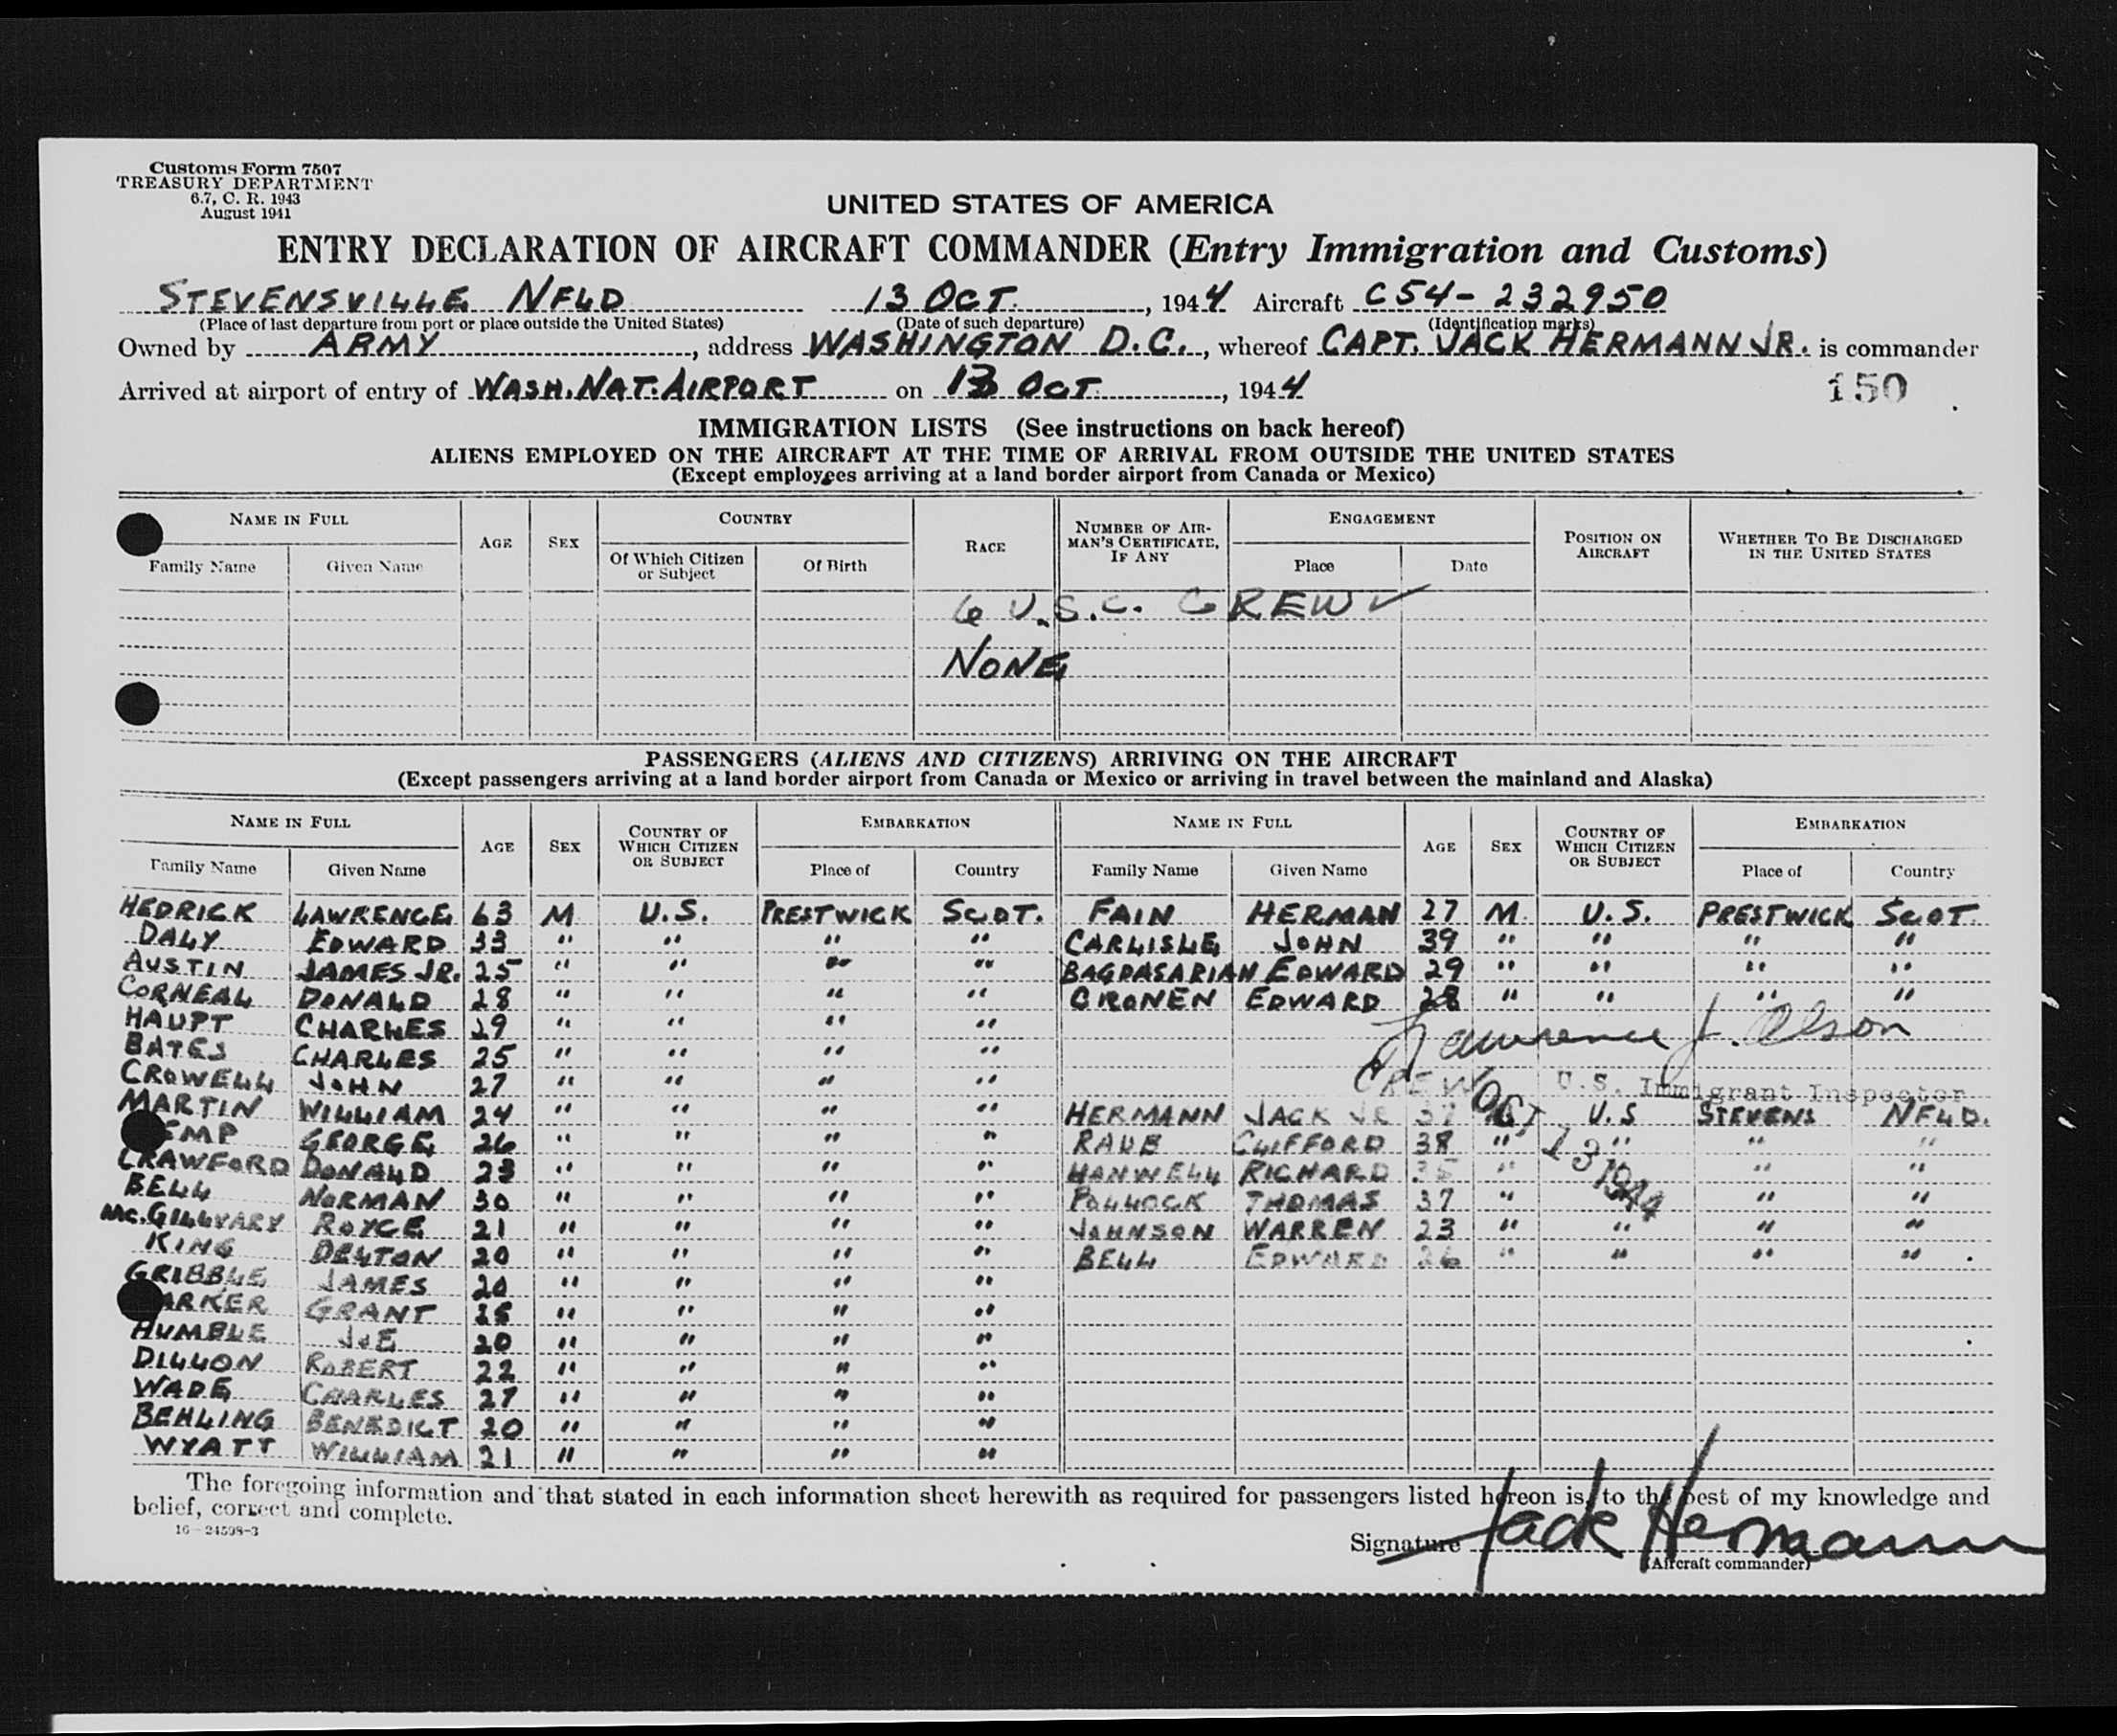 Customs Form 7507
TREASURY DEPARTMENT
6.7, C. R. 1943
August 1941
UNITED STATES OF AMERICA
ENTRY DECLARATION OF AIRCRAFT COMMANDER (Entry Immigration and Customs)
STEVENSVILLE NFLD 13 OCT. , 1944 Aircraft C54-232950
(Place of last departure from port or place outside the United States) (Date of such departure) (Identification marks)
Owned by ARMY , address WASHINGTON D.C. , whereof CAPT. JACK HERMANN JR. is commander
Arrived at airport of entry of WASH. NAT. AIRPORT on 13 OCT. , 1944 150
IMMIGRATION LISTS (See instructions on back hereof)
ALIENS EMPLOYED ON THE AIRCRAFT AT THE TIME OF ARRIVAL FROM OUTSIDE THE UNITED STATES
(Except employees arriving at a land border airport from Canada or Mexico)
NAME IN FULL AGE SEX COUNTRY RACE NUMBER OF AIRMAN'S CERTIFICATE, IF ANY ENGAGEMENT POSITION ON AIRCRAFT WHETHER TO BE DISCHARGED IN THE UNITED STATES
Family Name Given Name Of Which Citizen or Subject Of Birth Place Date
6 U.S.C. CREW ✓
NONE
PASSENGERS (ALIENS AND CITIZENS) ARRIVING ON THE AIRCRAFT
(Except passengers arriving at a land border airport from Canada or Mexico or arriving in travel between the mainland and Alaska)
NAME IN FULL AGE SEX COUNTRY OF WHICH CITIZEN OR SUBJECT EMBARKATION NAME IN FULL AGE SEX COUNTRY OF WHICH CITIZEN OR SUBJECT EMBARKATION
Family Name Given Name Place of Country Family Name Given Name Place of Country
HEDRICK LAWRENCE 63 M U.S. PRESTWICK SCOT. FAIN HERMAN 27 M U.S. PRESTWICK SCOT.
DALY EDWARD 33 " " " " CARLISLE JOHN 39 " " " "
AUSTIN JAMES JR. 25 " " " " BAGDASARIAN EDWARD 29 " " " "
CORNEAL DONALD 28 " " " " CRONEN EDWARD 28 " " " "
HAUPT CHARLES 29 " " " " Lawrence J. Olson
BATES CHARLES 25 " " " "
CROWELL JOHN 27 " " " " CREW U.S. Immigrant Inspector
MARTIN WILLIAM 24 " " " " HERMANN JACK JR 37 U.S STEVENS NFLD.
EMP GEORGE 26 " " " " RAUB CLIFFORD 38 " " " "
CRAWFORD DONALD 23 " " " " HANWELL RICHARD " " " "
BELL NORMAN 30 " " " " POLLOCK THOMAS 37 " " " "
MC.GILLVARY ROYCE 21 " " " " JOHNSON WARREN 23 " " " "
KING DELTON 20 " " " " BELL EDWARD 26 " " " "
GRIBBLE JAMES 20 " " " "
ARKER GRANT 25 " " " "
HUMBLE JOE 20 " " " "
DILLON ROBERT 22 " " " "
WADE CHARLES 27 " " " "
BEHLING BENEDICT 20 " " " "
WYATT WILLIAM 21 " " " "
OCT 13 1944
The foregoing information and that stated in each information sheet herewith as required for passengers listed hereon is, to the best of my knowledge and
belief, correct and complete.
16-24598-3
Signature Jack Hermann
(Aircraft commander)